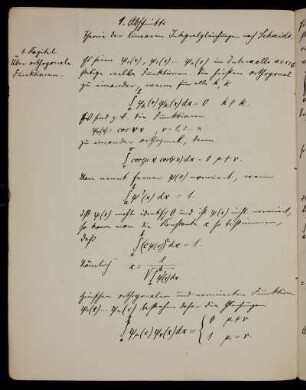 1. Abschnitt.
Theorie der linearen Integralgleichungen nach Schmidt.
1. Kapitel
Über orthogonale
Funktionen.
Es seien φ₁(x), φ₂(x)... φₙ(x) im Intervalle a≤x≤b
stetige reelle Funktionen. Sie heißen orthogonal
zu einander, wenn für alle h, k
∫ₐᵇ φₕ(x) φₖ(x) dx = 0 h ≠ k.
So sind z. B. die Funktionen
φᵥ(x) = cos νx ν = 1, 2... n
zu einander orthogonal, denn
∫ cos μx cos νx dx = 0 μ ≠ ν.
Man nennt ferner φ(x) normiert, wenn
∫ₐᵇ φ²(x) dx = 1.
Ist φ(x) nicht identisch 0 und ist φ(x) nicht normiert,
so kann man die Konstante c so bestimmen,
daß
∫ₐᵇ (cφ(x))² dx = 1.
Nämlich c = 1/√∫ₐᵇ φ²(x) dx
Zwischen orthogonalen und normierten Funktionen
φ₁(x)... φₙ(x) bestehen daher die Gleichungen
∫ₐᵇ φμ(x) φν(x) dx = { 0 μ ≠ ν
1 μ = ν